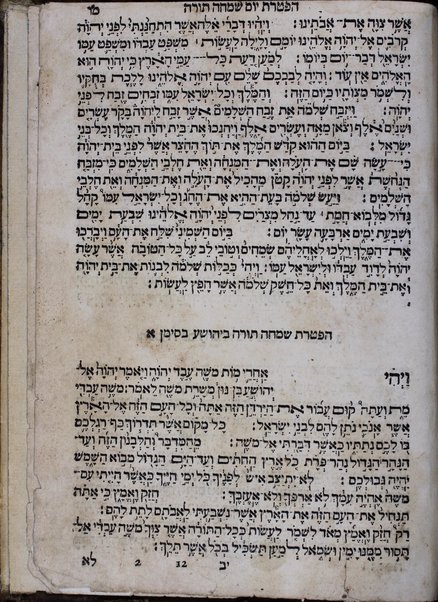 הפטרת יום שמחה תורה
אשר צוה את־אבתינו׃ ויהיו דברי אלה אשר התחננתי לפני יהוה
קרבים אל־יהוה אלהינו יומם ולילה לעשות משפט עבדו ומשפט עמו
ישראל דבר־יום ביומו׃ למען דעת כל־עמי הארץ כי יהוה הוא
האלהים אין עוד׃ והיה לבבכם שלם עם יהוה אלהינו ללכת בחקיו
ולשמר מצותיו כיום הזה׃ והמלך וכל־ישראל עמו זבחים זבח לפני
יהוה׃ ויזבח שלמה את זבח השלמים אשר זבח ליהוה בקר עשרים
ושנים אלף וצאן מאה ועשרים אלף ויחנכו את־בית יהוה המלך וכל־בני
ישראל׃ ביום ההוא קדש המלך את־תוך החצר אשר לפני בית־יהוה
כי־עשה שם את־העלה ואת־המנחה ואת חלבי השלמים כי־מזבח
הנחשת אשר לפני יהוה קטן מהכיל את־העלה ואת־המנחה ואת חלבי
השלמים׃ ויעש שלמה בעת־ההיא את־החג וכל־ישראל עמו קהל
גדול מלבוא חמת עד־נחל מצרים לפני יהוה אלהינו שבעת ימים
ושבעת ימים ארבעה עשר יום׃ ביום השמיני שלח את־העם ויברכו
את־המלך וילכו לאהליהם שמחים וטובי לב על כל־הטובה אשר עשה
יהוה לדוד עבדו ולישראל עמו׃ ויהי ככלות שלמה לבנות את־בית יהוה
ואת־בית המלך ואת כל־חשק שלמה אשר חפץ לעשות׃
הפטרת שמחה תורה ביהושע בסימן א
ויהי אחרי מות משה עבד יהוה ויאמר יהוה אל־
יהושע בן נון משרת משה לאמר׃ משה עבדי
מת ועתה קום עבור את הירדן הזה אתה וכל־העם הזה אל־הארץ
אשר אנכי נתן להם לבני ישראל׃ כל מקום אשר תדרוך כף־רגלכם
בו לכם נתתיו כאשר דברתי אל משה׃ מהמדבר והלבנון הזה ועד־
הנהר הגדל נהר פרת כל ארץ החתים ועד־הים הגדול מבוא השמש
יהיה גבולכם׃ לא יתיצב איש לפניך כל ימי חייך כאשר הייתי עם־
משה אהיה עמך לא ארפך ולא אעזבך׃ חזק ואמץ כי אתה
תנחיל את־העם הזה את־הארץ אשר נשבעתי לאבתם לתת להם׃
רק חזק ואמץ מאד לשמר לעשות ככל־התורה אשר צוך משה עבדי אל־
תסור ממנו ימין ושמאל למען תשכיל בכל אשר תלך׃
יב 12 2 לא